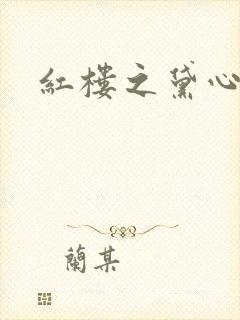 紅樓之黛心
蘭某